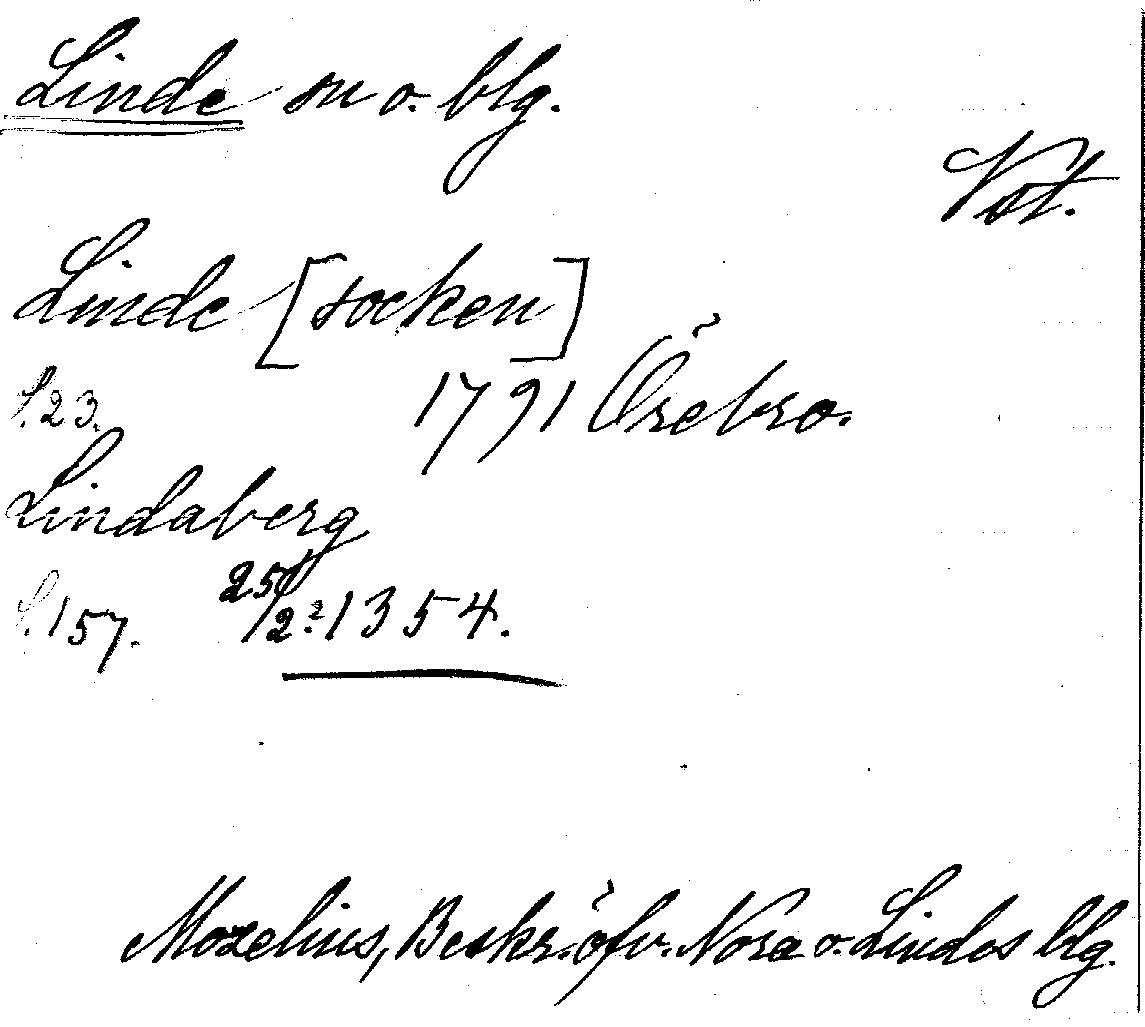 Linde sn o. blg.
Vst.
Linde [socken]
S. 23. 1791 Örebro.
Lindaberg
S. 157. 25/2? 1354.
Mozelius, Beskr. öfv. Nora o. Lindes blg.